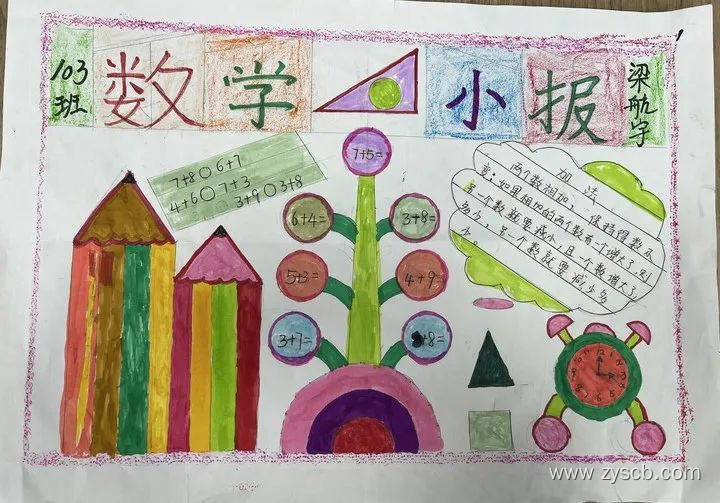 103
班
数学
小报
梁航宇
7+8○6+7
4+6○7+3
3+9○3+8
7+5=
6+4=
3+8=
5+3=
4+9=
3+7=
+8=
加法
两个数相加,保持得数不
变;如果相加的两个数有一个增大了,则
另一个数就要减小,且一个数增大了
多少,另一个数就要减少多
少。
12
www.zyscb.com